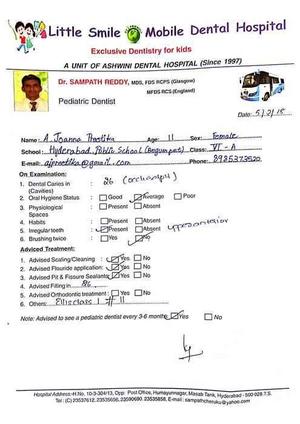 Little Smile Mobile Dental Hospital
Exclusive Dentistry for kids
A UNIT OF ASHWINI DENTAL HOSPITAL (Since 1997)
Dr. SAMPATH REDDY, MDS, FDS RCPS (Glasgow)
MFDS RCS (England)
Pediatric Dentist
Date: 5/2/18
Name: A. Joanna Age: 11 Sex: Female
School: Hyderabad Public School (Begumpet) Class: VI - A
E-mail: @gmail.com Phone:
On Examination:
1. Dental Caries in (Cavities) : 26
2. Oral Hygiene Status : Good Average Poor
3. Physiological Spaces : Present Absent
4. Habits : Present Absent
5. Irregular teeth : Present Absent
6. Brushing twice : Yes No
Adviced Treatment:
1. Advised Scaling/Cleaning : Yes No
2. Advised Flouride application : Yes No
3. Advised Pit & Fissure Sealants : Yes No
4. Advised Filling in
5. Advised Orthodontic treatment : Yes No
6. Others: Ellis class I # 11
Note: Advised to see a pediatric dentist every 3-6 months Yes No
Hospital Address:-H.No. 10-3-304/13, Opp: Post Office, Humayunnagar, Masab Tank, Hyderabad - 500 028.T.S.
Tel : (C) 23537612, 23535656, 23590690. 23350858. E-mail : sampathcheruku@yahoo.com